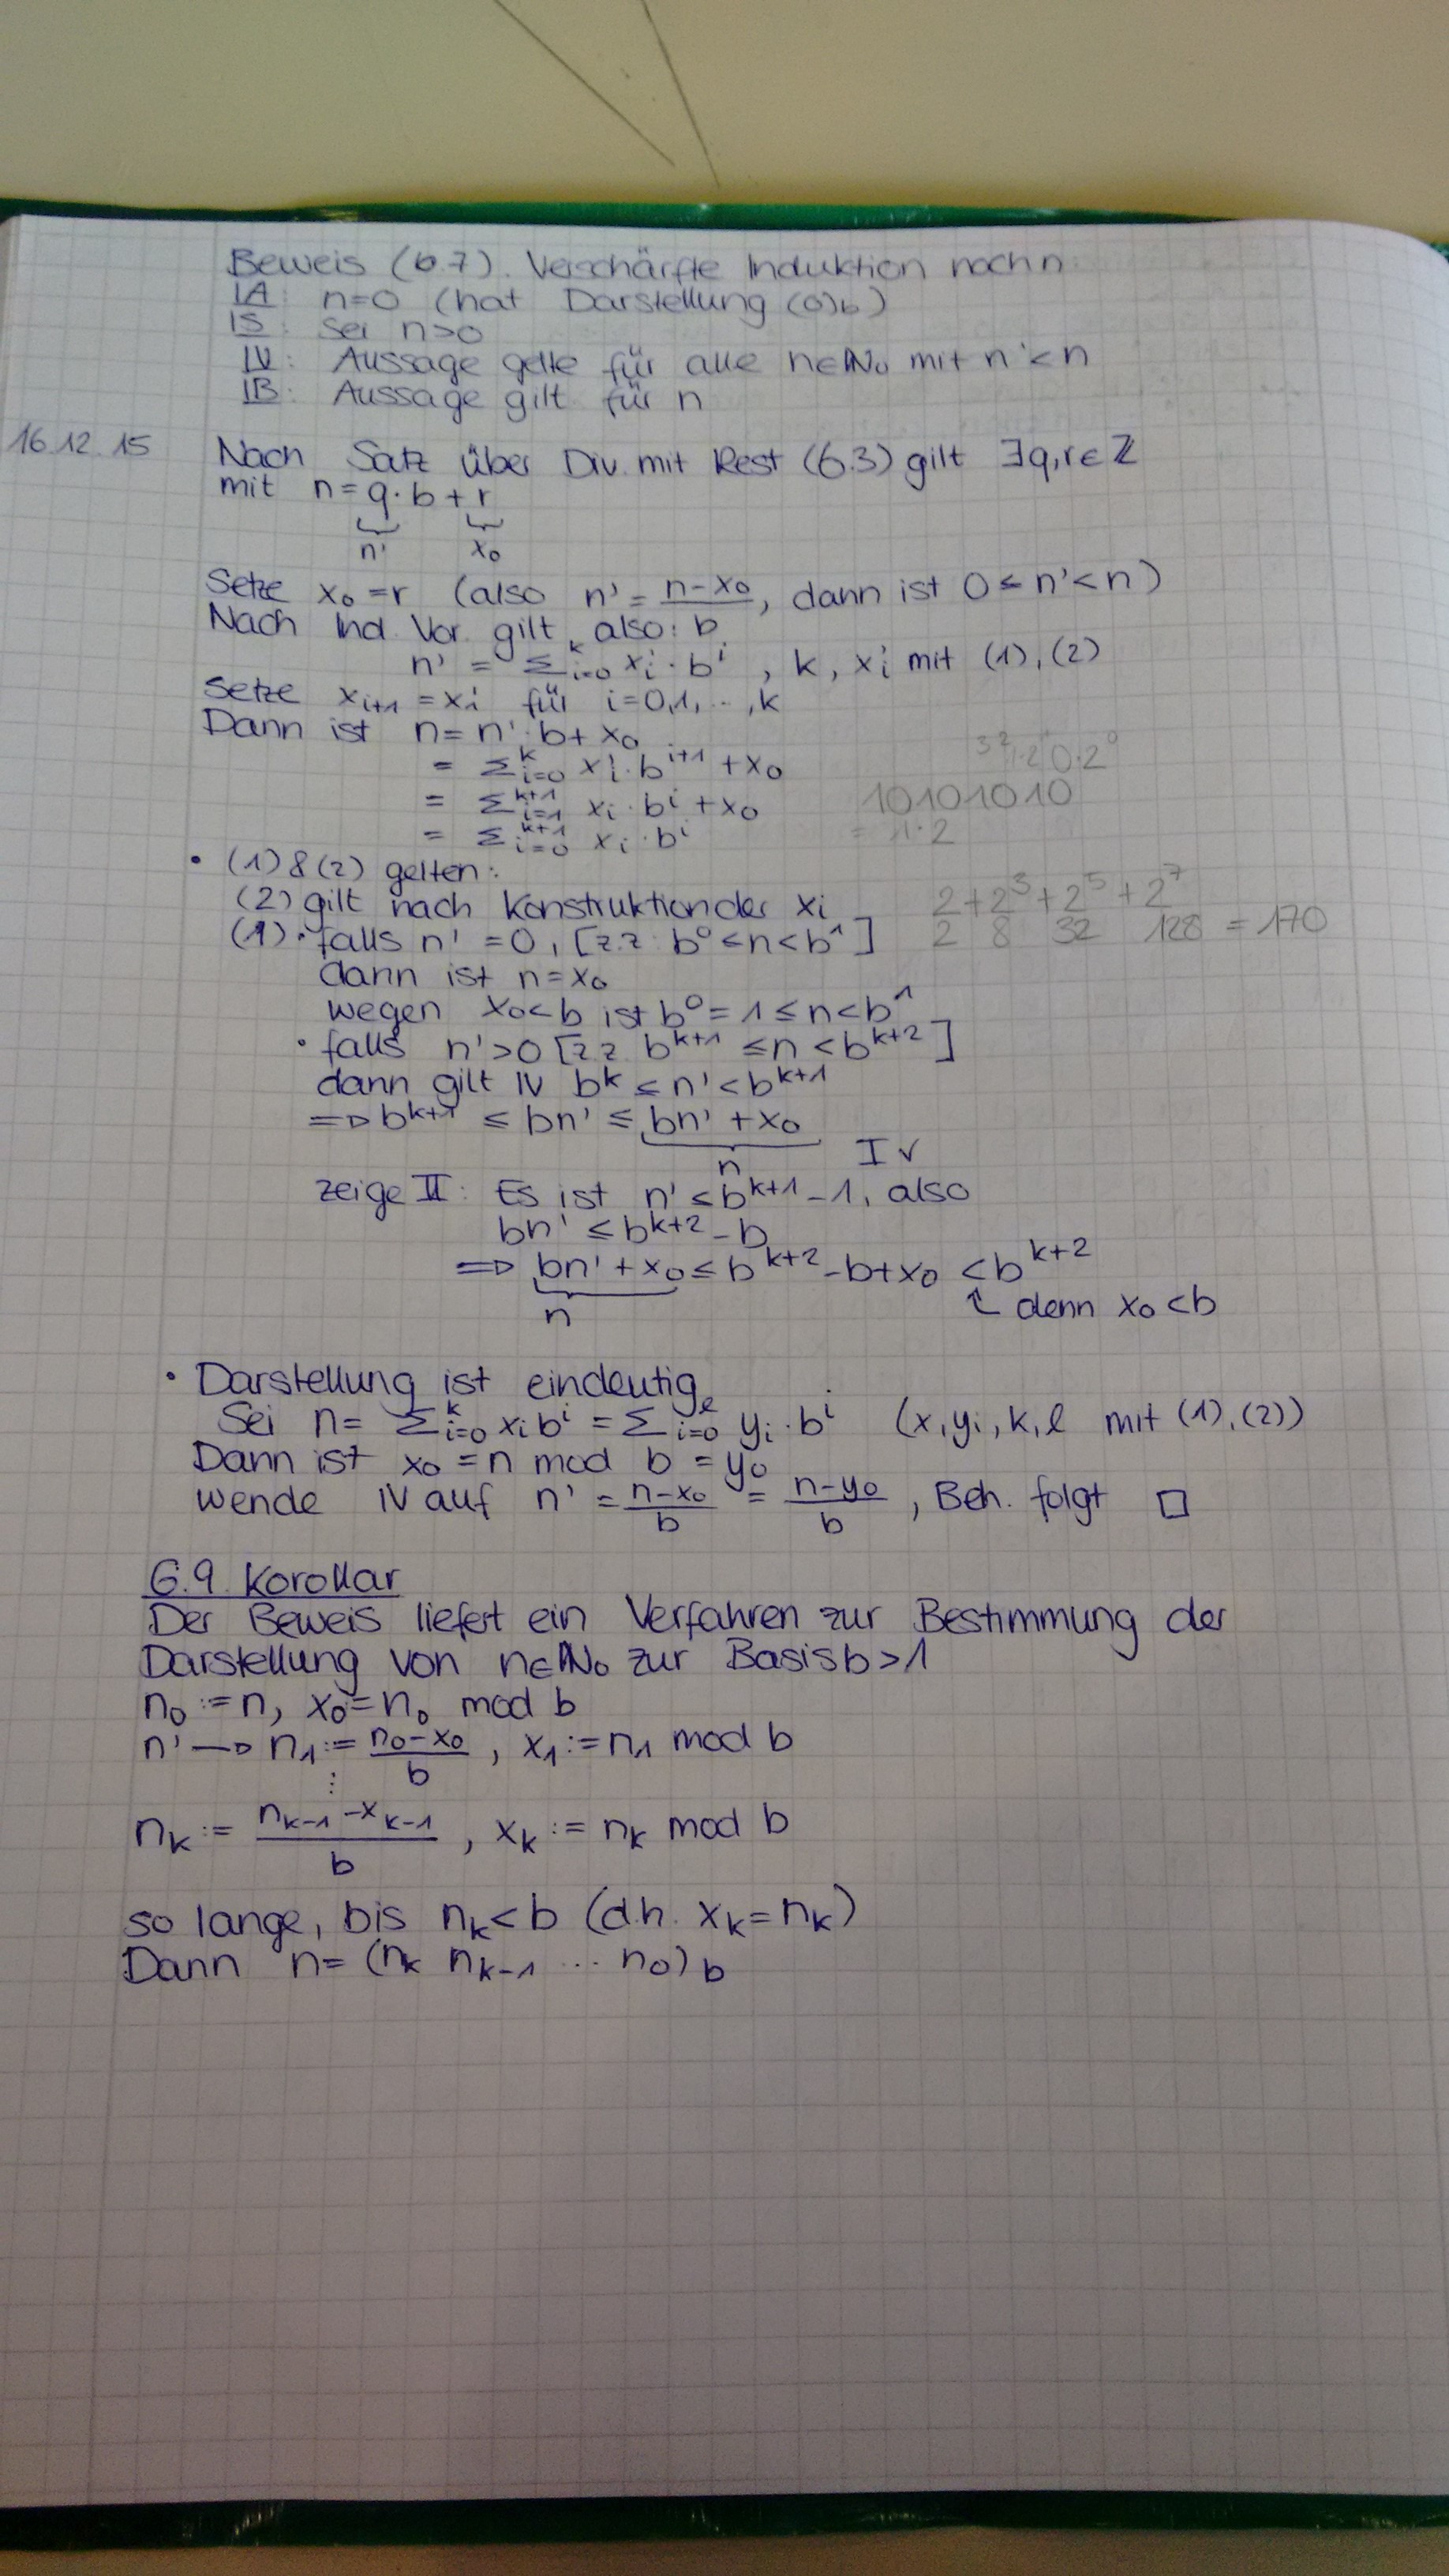 Beweis (6.7). Verschärfte Induktion nach n
IA: n=0 (hat Darstellung (0)b)
IS: Sei n>0
IV: Aussage gelte für alle n∈ℕ₀ mit n'<n
IB: Aussage gilt für n
16.12.15 Nach Satz über Div. mit Rest (6.3) gilt ∃q,r∈ℤ
mit n=q·b+r
n' x₀
Setze x₀=r (also n' = (n-x₀)/b, dann ist 0≤n'<n)
Nach Ind. Vor. gilt also:
n' = Σ_{i=0}^{k} x_i'·b^i, k, x_i' mit (1),(2)
Setze x_{i+1} = x_i' für i=0,1,..,k
Dann ist n=n'·b+x₀
= Σ_{i=0}^{k} x_i'·b^{i+1}+x₀
= Σ_{i=1}^{k+1} x_i·b^i+x₀
10101010
= Σ_{i=0}^{k+1} x_i·b^i
= 1·2
• (1)&(2) gelten:
(2) gilt nach Konstruktion der x_i
2+2³+2⁵+2⁷
(1)• falls n'=0, [z.z. b⁰≤n<b¹]
2 8 32 128 = 170
dann ist n=x₀
wegen x₀<b ist b⁰=1≤n<b¹
• falls n'>0 [z.z. b^{k+1} ≤n<b^{k+2}]
dann gilt IV b^k≤n'<b^{k+1}
⇒ b^{k+1} ≤ bn' ≤ bn'+x₀
n I ✓
zeige II: Es ist n'≤b^{k+1}-1, also
bn' ≤b^{k+2}-b
⇒ bn'+x₀≤b^{k+2}-b+x₀ <b^{k+2}
n ↑ denn x₀<b
• Darstellung ist eindeutig
Sei n= Σ_{i=0}^{k} x_i b^i = Σ_{i=0}^{ℓ} y_i·b^i (x,y_i,k,ℓ mit (1),(2))
Dann ist x₀=n mod b = y₀
wende IV auf n' = (n-x₀)/b = (n-y₀)/b, Beh. folgt □
6.9. Korollar
Der Beweis liefert ein Verfahren zur Bestimmung der
Darstellung von n∈ℕ₀ zur Basis b>1
n₀:=n, x₀=n₀ mod b
n' → n₁:= (n₀-x₀)/b, x₁:=n₁ mod b
⋮
n_k := (n_{k-1}-x_{k-1})/b, x_k := n_k mod b
so lange, bis n_k<b (d.h. x_k=n_k)
Dann n=(n_k n_{k-1} ... n₀)_b